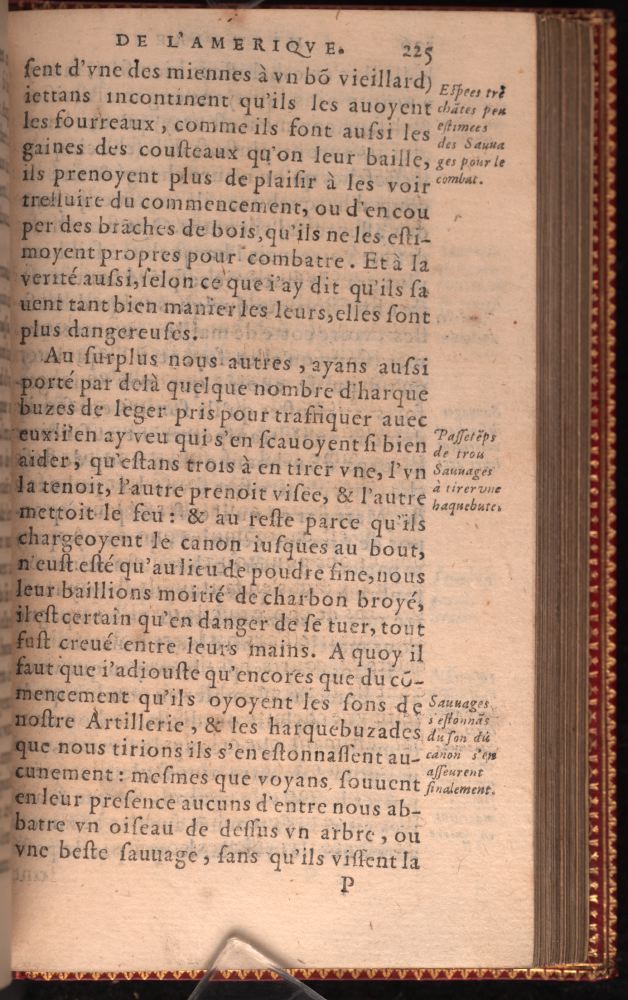 DE L'AMERIQVE. 225
sent d'vne des miennes à vn bõ vieillard)
iettans incontinent qu'ils les auoyent
les fourreaux, comme ils font aussi les
gaines des cousteaux qu'on leur baille,
ils prenoyent plus de plaisir à les voir
tresluire du commencement, ou d'en cou
per des brãches de bois, qu'ils ne les esti-
moyent propres pour combatre. Et à la
verité aussi, selon ce que i'ay dit qu'ils sa
uent tant bien manier les leurs, elles sont
plus dangereuses.
Au surplus nous autres, ayans aussi
porté par delà quelque nombre d'harque
buzes de leger pris pour traffiquer auec
eux: i'en ay veu qui s'en scauoyent si bien
aider, qu'estans trois à en tirer vne, l'vn
la tenoit, l'autre prenoit visee, & l'autre
mettoit le feu: & au reste parce qu'ils
chargeoyent le canon iusques au bout,
n'eust esté qu'au lieu de poudre fine, nous
leur baillions moitié de charbon broyé,
il est certain qu'en danger de se tuer, tout
fust creué entre leurs mains. A quoy il
faut que i'adiouste qu'encores que du cõ-
mencement qu'ils oyoyent les sons de
nostre Artillerie, & les harquebuzades
que nous tirions ils s'en estonnassent au-
cunement: mesmes que voyans souuent
en leur presence aucuns d'entre nous ab-
batre vn oiseau de dessus vn arbre, ou
vne beste sauuage, sans qu'ils vissent la
P
Espees trẽ
chãtes peu
estimees
des Sauua
ges pour le
combat.
Passetẽps
de trois
Sauuages
à tirer vne
haquebute.
Sauuages
s'estonnãs
du son du
canon s'en
asseurent
finalement.